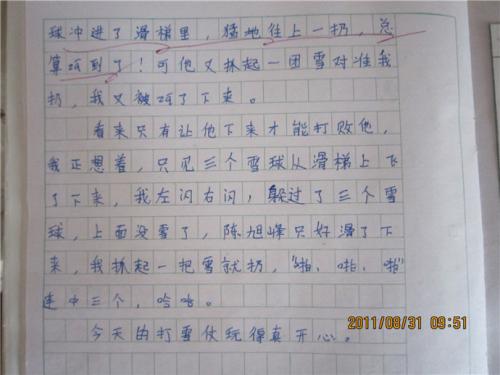 球冲进了滑梯里，猛地往上一扔，总
算砸到了！可他又抓起一团雪对准我
扔，我又被砸了下来。
看来只有让他下来才能打败他，
我正想着，只见三个雪球从滑梯上飞
了下来，我左闪右闪，躲过了三个雪
球，上面没雪了，陈旭峰只好滑了下
来，我抓起一把雪就扔，“啪、啪、啪”
连中三个，哈哈。
今天的打雪仗玩得真开心。
2011/08/31 09:51